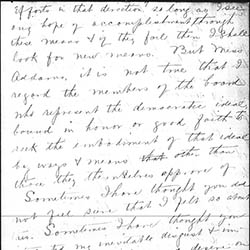 efforts in that direction so long as I see
any hope of accomplishment through
these means & if they fail then I shall
look for new means. But Miss
Addams, it is not true that I
regard the members of the board
who represent the democratic ideal
bound in honor or good faith to
seek the embodiment of that ideal
by ways & means that other than
those they themselves approve of
Sometimes I have thought you did
not feel sure that I felt so about
us. Sometimes I have thought you
my inevitable disgust & im